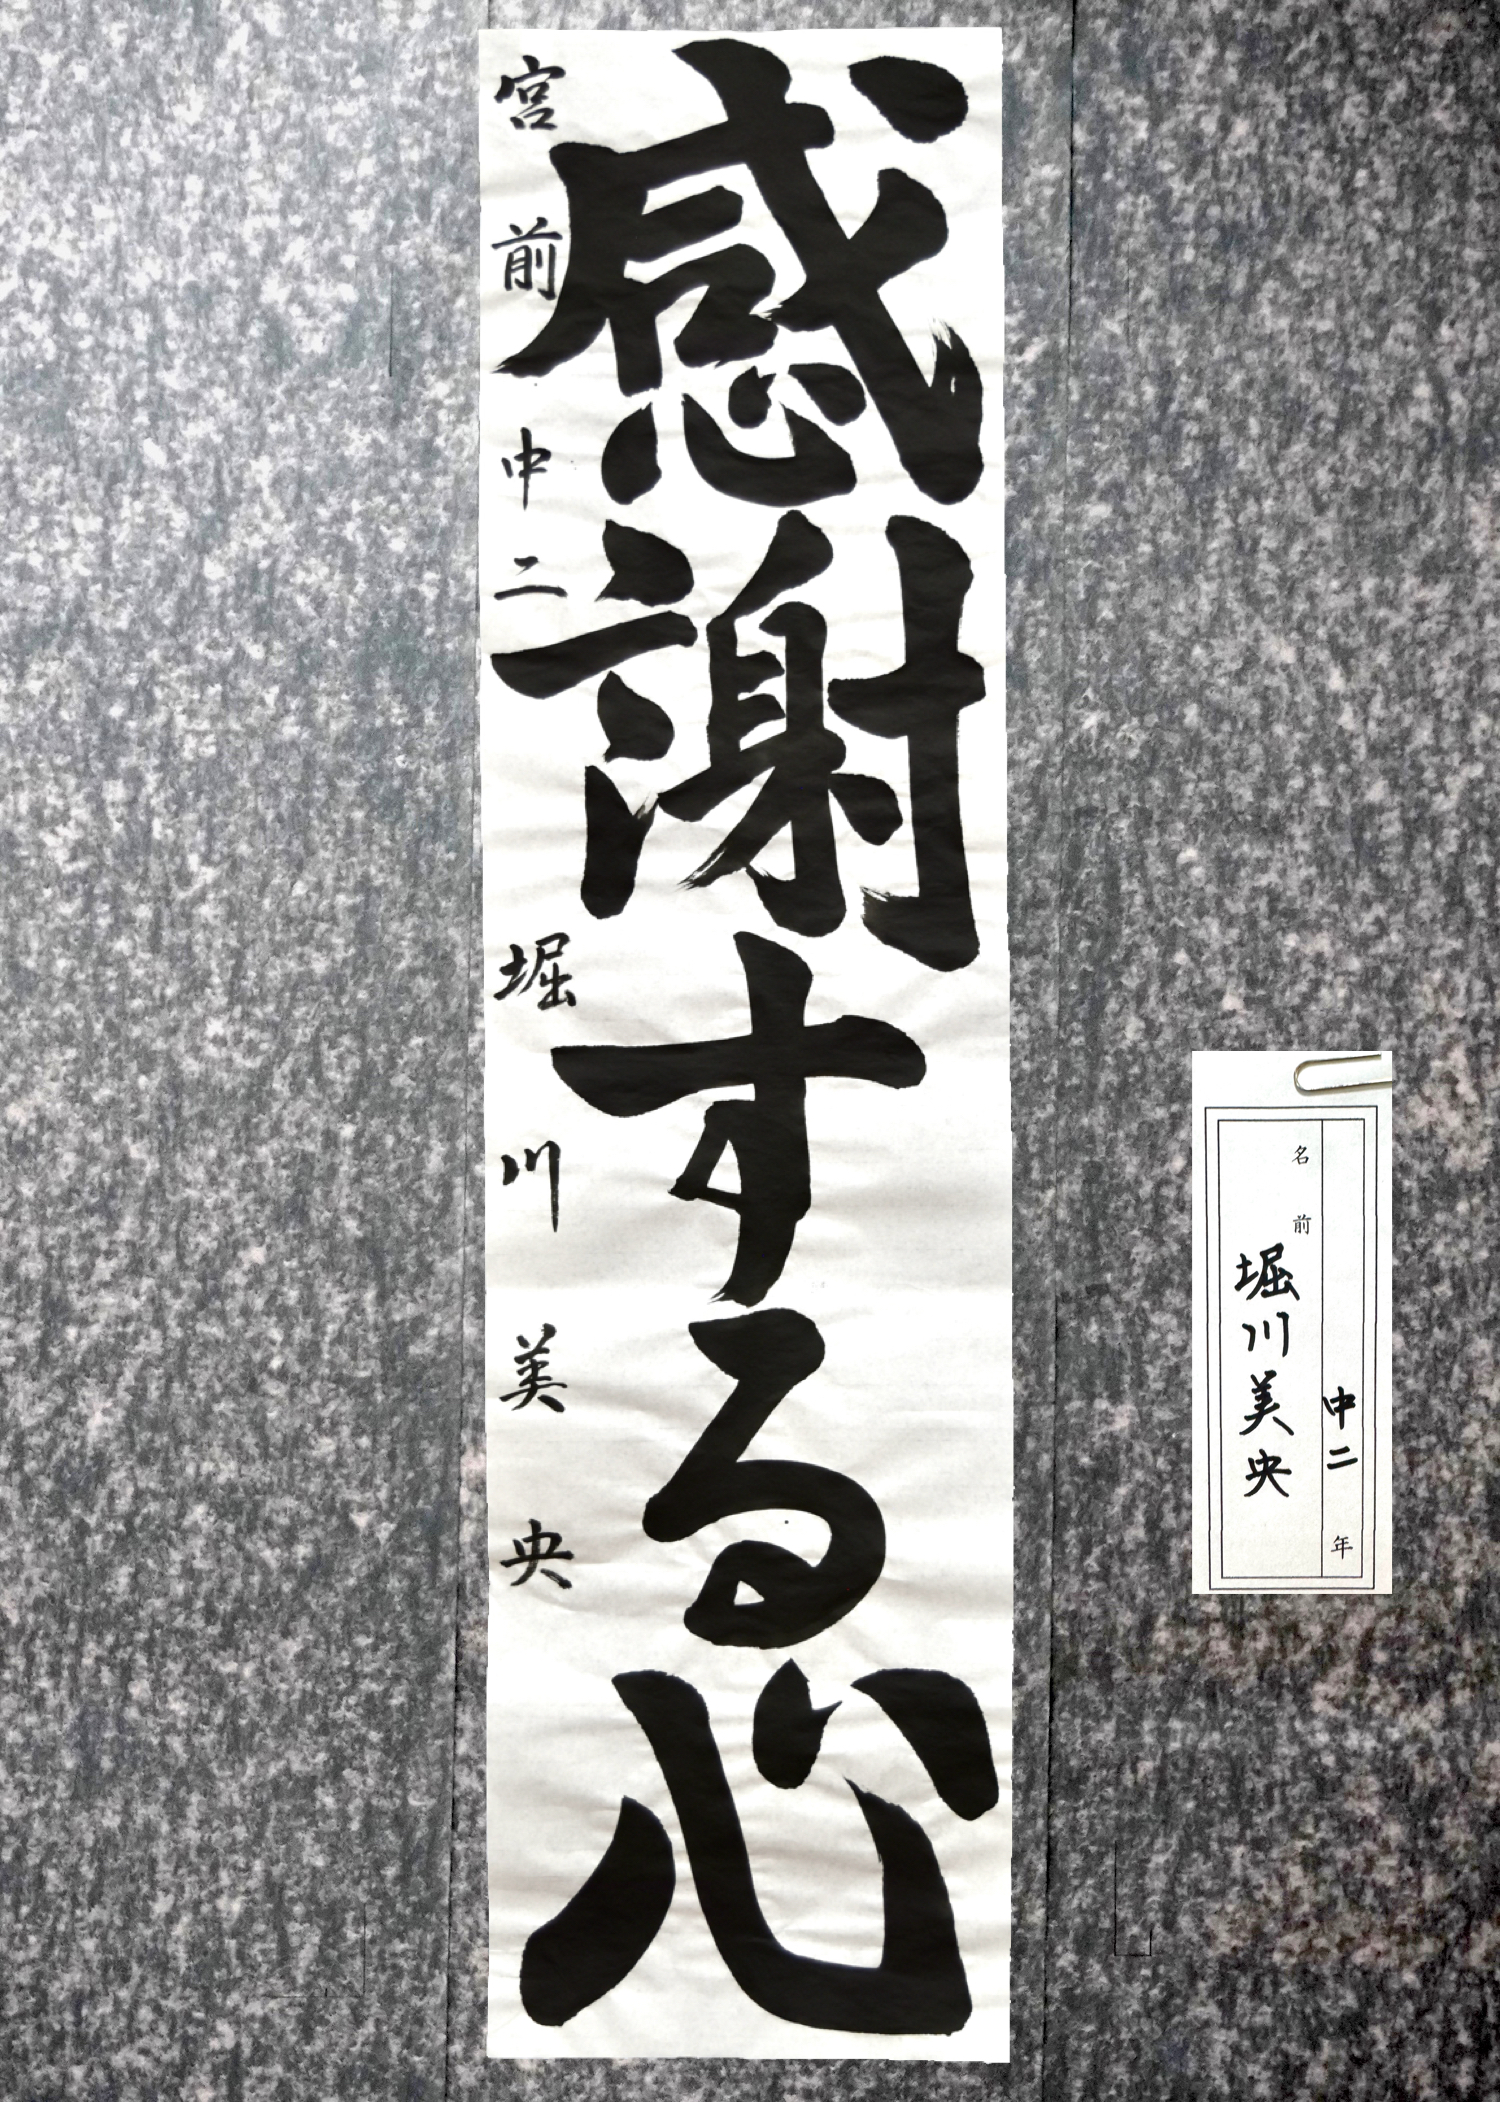 感謝する心
宮前中二 堀川美央
中二年
名前 堀川美央